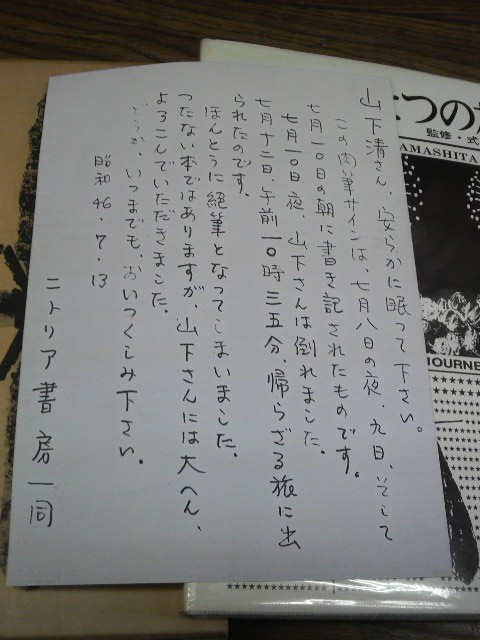 山下清さん、安らかに眠って下さい。
この肉筆サインは、七月八日の夜、九日、そして
七月一〇日の朝に書き記されたものです。
七月一〇日夜、山下さんは倒れました。
七月十二日、午前一〇時三五分、帰らざる旅に出
られたのです。
ほんとうに絶筆となってしまいました。
つたない本ではありますが、山下さんには大へん、
よろこんでいただきました。
どうか、いつまでも、おいつくしみ下さい。
昭和46.7.13
ニトリア書房一同
つの
監修・式
AMASHITA
JOURNE